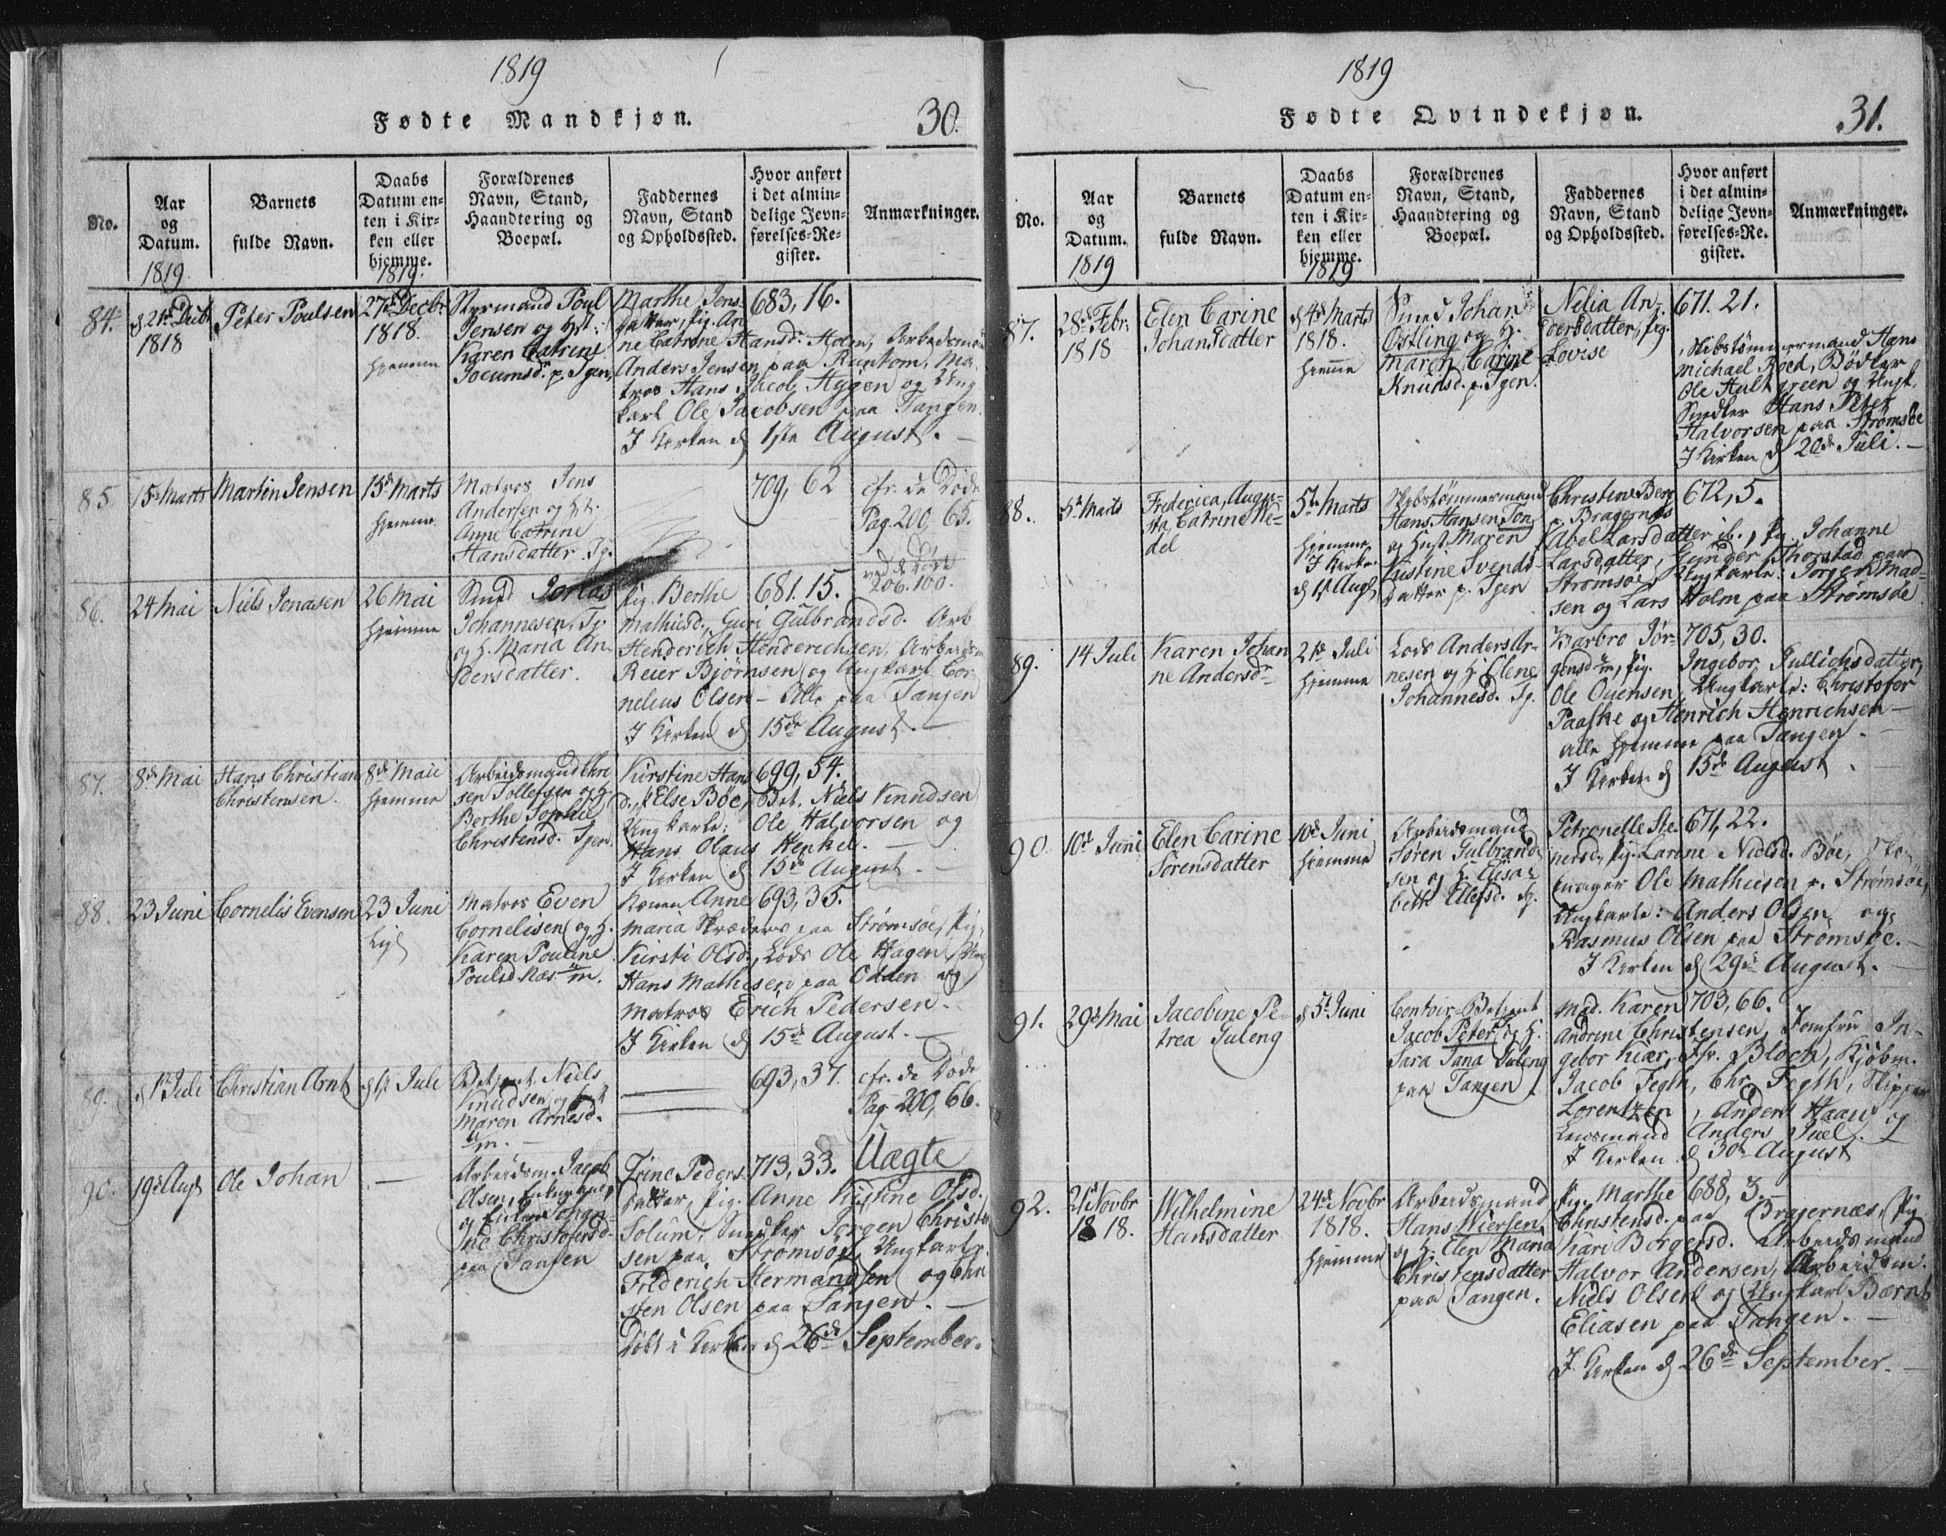 1819
Fødte Mandkjøn.
30.
No.
Aar
og
Datum.
1819.
Barnets
fulde Navn.
Daabs
Datum en-
ten i Kir-
ken eller
hjemme.
1819.
Forældrenes
Navn, Stand,
Haandtering og
Boepæl.
Faddernes
Navn, Stand
og Opholdssted.
Hvor anført
i det almin-
delige Jevn-
førelses-Re-
gister.
Anmærkninger.
84.
1818
Peter Poulsen
27de Decbr
1818.
hjemme
Styrmand Poul
Jensen og H.
Karen Catrine
Jocumsd. p. Tgen
Marthe Jens-
datter, pig. An-
ne Catrine Hansd. Holm, Arbeidsm
Anders Jensen paa Runtom, Ma-
tros Hans Jacob Hygen og Ung
karl Ole Jacobsen paa Tangen.
I Kirken d 1ste August. —
683, 16.
85.
15de Marts
Martin Jensen
15de Marts
hjemme
Matros Jens
Andersen og H.
Anne Catrine
Hansdatter Tg.
709, 62
cfr. de Døde
Pag. 200, 65.
206. 100.
86.
24 Mai
Niels Jonasen
26 Mai
hjemme
Smed Jonas
Johannesen, Tg.
og H. Maria An-
dersdatter.
pig. Berthe
Mathisd., Guri Gulbrandsd. Arb
Henderich Henderichsen, Arbeidsm
Reier Bjørnsen og Ungkarl Cor-
nelius Olsen — Alle paa Tangen
I Kirken d 15de August. —
681. 15.
87.
8de Mai
Hans Christian
Christensen.
8de Maii
hjemme
Arbeidsmand Chri
sen Tollefsen og H.
Berthe Sophie
Christensd. Tgen.
Kirstine Hans
d., Else Bøe, Bet. Niels Knudsen
Ungkarle: Ole Halvorsen og
Hans Olaus Henkel. —
I Kirken d 15de August. —
699, 54.
88.
23 Juni
Cornelis Evensen
23 Juni
Matros Even
Cornelisen og H.
Karen Pouline
Konen Anne
Maria Skræders paa Strømsøe, pig.
Kirsti Olsd., Lods Ole Hagen,
Hans Mathisen paa Odden og
Matros Erich Pedersen.
I Kirken d 15de August. —
693, 35.
89.
d 1st Juli
Christian Arnt
Juli
Betjent Niels
Knudsen og
Maren Arnesd.
693, 37.
cfr. de Døde
Pag. 200, 66.
90.
19de Aug
Ole Johan
—
Arbeidsm. Jacob
Olsen,
og
ne Christofersd
paa Tangen
Trine Peders-
datter, pig. Anne Kirstine Olsd.
Solum, Snedker Jørgen Christen
sen paa Strømsøe, Ungkarle
Friderich Hermandsen og Chri
sten Olsen paa Tangen. —
Døbt i Kirken d 26de September.
713, 33.
Uægte
1819
Fødte Qvindekjøn.
31.
No.
Aar
og
Datum.
1819
Barnets
fulde Navn.
Daabs
Datum en-
ten i Kir-
ken eller
hjemme.
1819
Forældrenes
Navn, Stand,
Haandtering og
Boepæl.
Faddernes
Navn, Stand
og Opholdssted.
Hvor anført
i det almin-
delige Jevn-
førelses-Re-
gister.
Anmærkninger.
87.
28de Febr.
1818
Elen Carine
Johansdatter
d 4de Marts
1818.
hjemme
Smed Johan
Østling og H.
Maren Carine
Knudsd. p. Tgen.
Nelia An-
dersdatter, pig.
Lovise
671. 21.
, Skibstømmermand Hans
Michael Roed, Bødker
Ole Hultgreen og Ungk.
Snedker Hans Peter
Halvorsen paa Strømsøe
I Kirken d 20de Juli. —
88.
5te Marts
Frederica, Augu-
sta, Catrine We-
del
5te Marts
hjemme
I Kirke
d 1st Aug
Skibstømmermand
Hans Hansen
og Hust Maren
Kristine Svends-
datter p. Tgen
Christine Berg
p. Bragernæs
Abel Larsdatter ib., pig. Johanne
Larsdatter, Gunder Thorstad paa
Strømsøe, Ungkarle: Jørgen Mad-
sen og Lars Holm paa Strømsøe
672, 5.
89.
14 Juli
Karen Johan
ne Andersd.
21de Juli
hjemme
Lods Anders Ar-
nesen og H. Elene
Johannesd. Tg.
Barbro Jør-
gensd., pig. Ingebor Jullichsdatter,
Ole Ovensen, Ungkarle: Christofer
Paaske og Henrich Henrichsen —
alle hjemme paa Tangen. —
I Kirken d 15de August.
705, 30.
90.
10de Juni
Elen Carine
Sørensdatter
10de Juni
hjemme
Arbeidsmand
Søren Gulbrand-
sen og H. Elisa-
beth Ellefsd. Tg.
Petronelle Ste-
persd., pig. Larine Nielsd. Bøe,
mager Ole Mathiesen p. Strømsøe,
Ungkarle: Anders Olsen og
Rasmus Olsen paa Strømsøe. —
I Kirken d 29de August. —
671, 22.
91.
29de Mai
Jacobine Pe-
trea Juleng
d 5te Juni
Contoir-Betjent
Jacob Peter og H.
Sara Jana Juleng
paa Tangen
Md. Karen
Andrine Christensen, Jomfru In-
gebor Kiær, Hr. Bloch, Kjøbm.
Jacob Fegth, Chr. Fegth, Skipper
Lorentzen, Anders Haan og
Lensmand Anders Juel. —
I Kirken d 30te August
703, 66.
92.
21de Novbr
1818.
Wilhelmine
Hansdatter
24de Novbr
1818.
hjemme
Arbeidsmand
Hans Niersen
og H. Elen Maria
Christensdatter
paa Tangen.
pig. Marthe
Christensd. paa Bragernæs, pig
Kari Borgersd. Arbeidsmand
Halvor Andersen, Arbeidsm.
Niels Olsen og Ungkarl Bærnt
Eliasen paa Tangen. —
I Kirken d 26de September. —
688, 3.